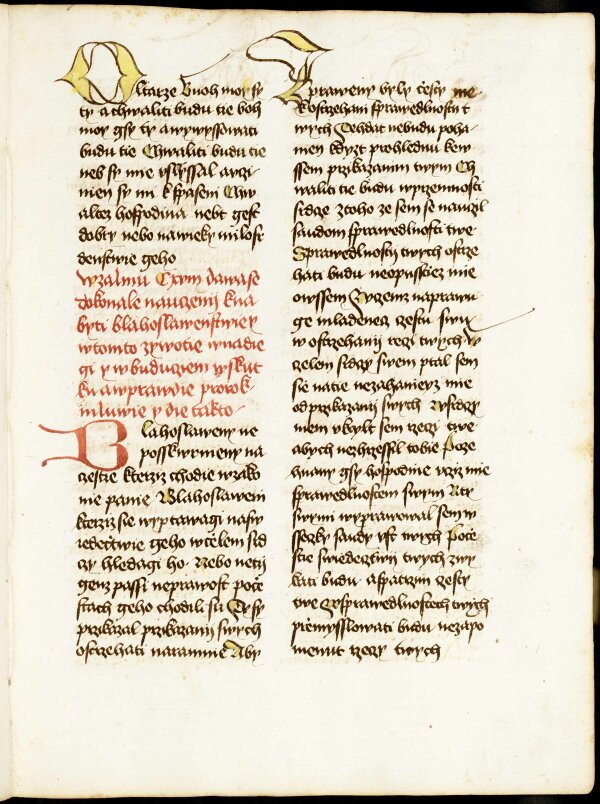 Oltarze Buoh moy sy
ty a chwaliti budu tie boh
moy gsy ty a wywyssowati
budu tie Chwaliti budu tie
neb sy mie vslyssal a vczi
nien sy mi k spaseni Chw
altez hospodina nebt gest
dobry nebo na wieky milos
denstwie geho
W zalmu Cxvm dawa se
dokonale nauczenij k na
byti blahoslawenstwie y
w tomto zywotie w nadie
gi y w buduciem w skut
ku a w prawdie prorok
mluwie y die takto
Blahoslaweny ne
posskwrnieny na
czestie kterziz chodie w zako
nie panie Blahoslaweni
kterziz sie wyptawagi na sw
iedectwie geho w celem srd
czy hledagi ho Nebo ne ti
genz passi neprawost po cie
stach geho chodili su Ty sy
przikazal przikazanij swych
ostrzehati naramnie Aby
zpraweny byly cesty me
K ostrzehani sprawedlnosti t
wych Tehdat nebudu poha
nien kdyzt prohlednu ke w
ssem przikazanim twym Ch
waliti tie budu w uprziemnosti
srdcze z toho ze sem se nauczil
sandom sprawedlnosti twe
Sprawedlnostij twych ostrze
hati budu neopusstiez mie
owssem W czemz naprawu
ge mladenecz czestu swu
w ostrzehanij rzeczi twych W
czelem srdczy swem ptal sem
sie na tie nezahanieyz mie
od przikazanij swych W srdczy
mem vkryl sem rzeczy twe
abych nezhrzessil tobie Poze
hnany gsy hospodine vcziz mie
sprawedlnostem swym Rty
swymi wyprawowal sem w
sseczky saudy vst twych Po cie
stie swiedecztwij twych zwy
kati budu a spatrzim czesty
twe W sprawedlnostech twych
przemysslowati budu nezapo
menut rzeczy twych